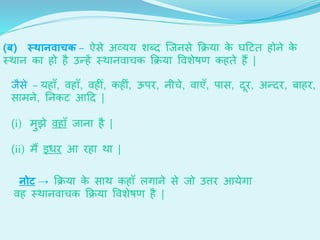 (ब) स्थानवाचक – ऐसे अव्यय शब्द जिनसे क्रिया के घटित होने के
स्थान का हो है उन्हें स्थानवाचक क्रिया विशेषण कहते हैं |
जैसे – यहाँ, वहाँ, वहीं, कहीं, ऊपर, नीचे, वाएँ, पास, दूर, अन्दर, बाहर,
सामने, निकट आदि |
(i) मुझे वहाँ जाना है |
(ii) मैं इधर आ रहा था |
नोट → क्रिया के साथ कहाँ लगाने से जो उत्तर आयेगा
वह स्थानवाचक क्रिया विशेषण है |